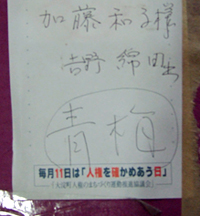 加藤和子様
吉野 綿田
青梅
毎月11日は「人権を確かめあう日」